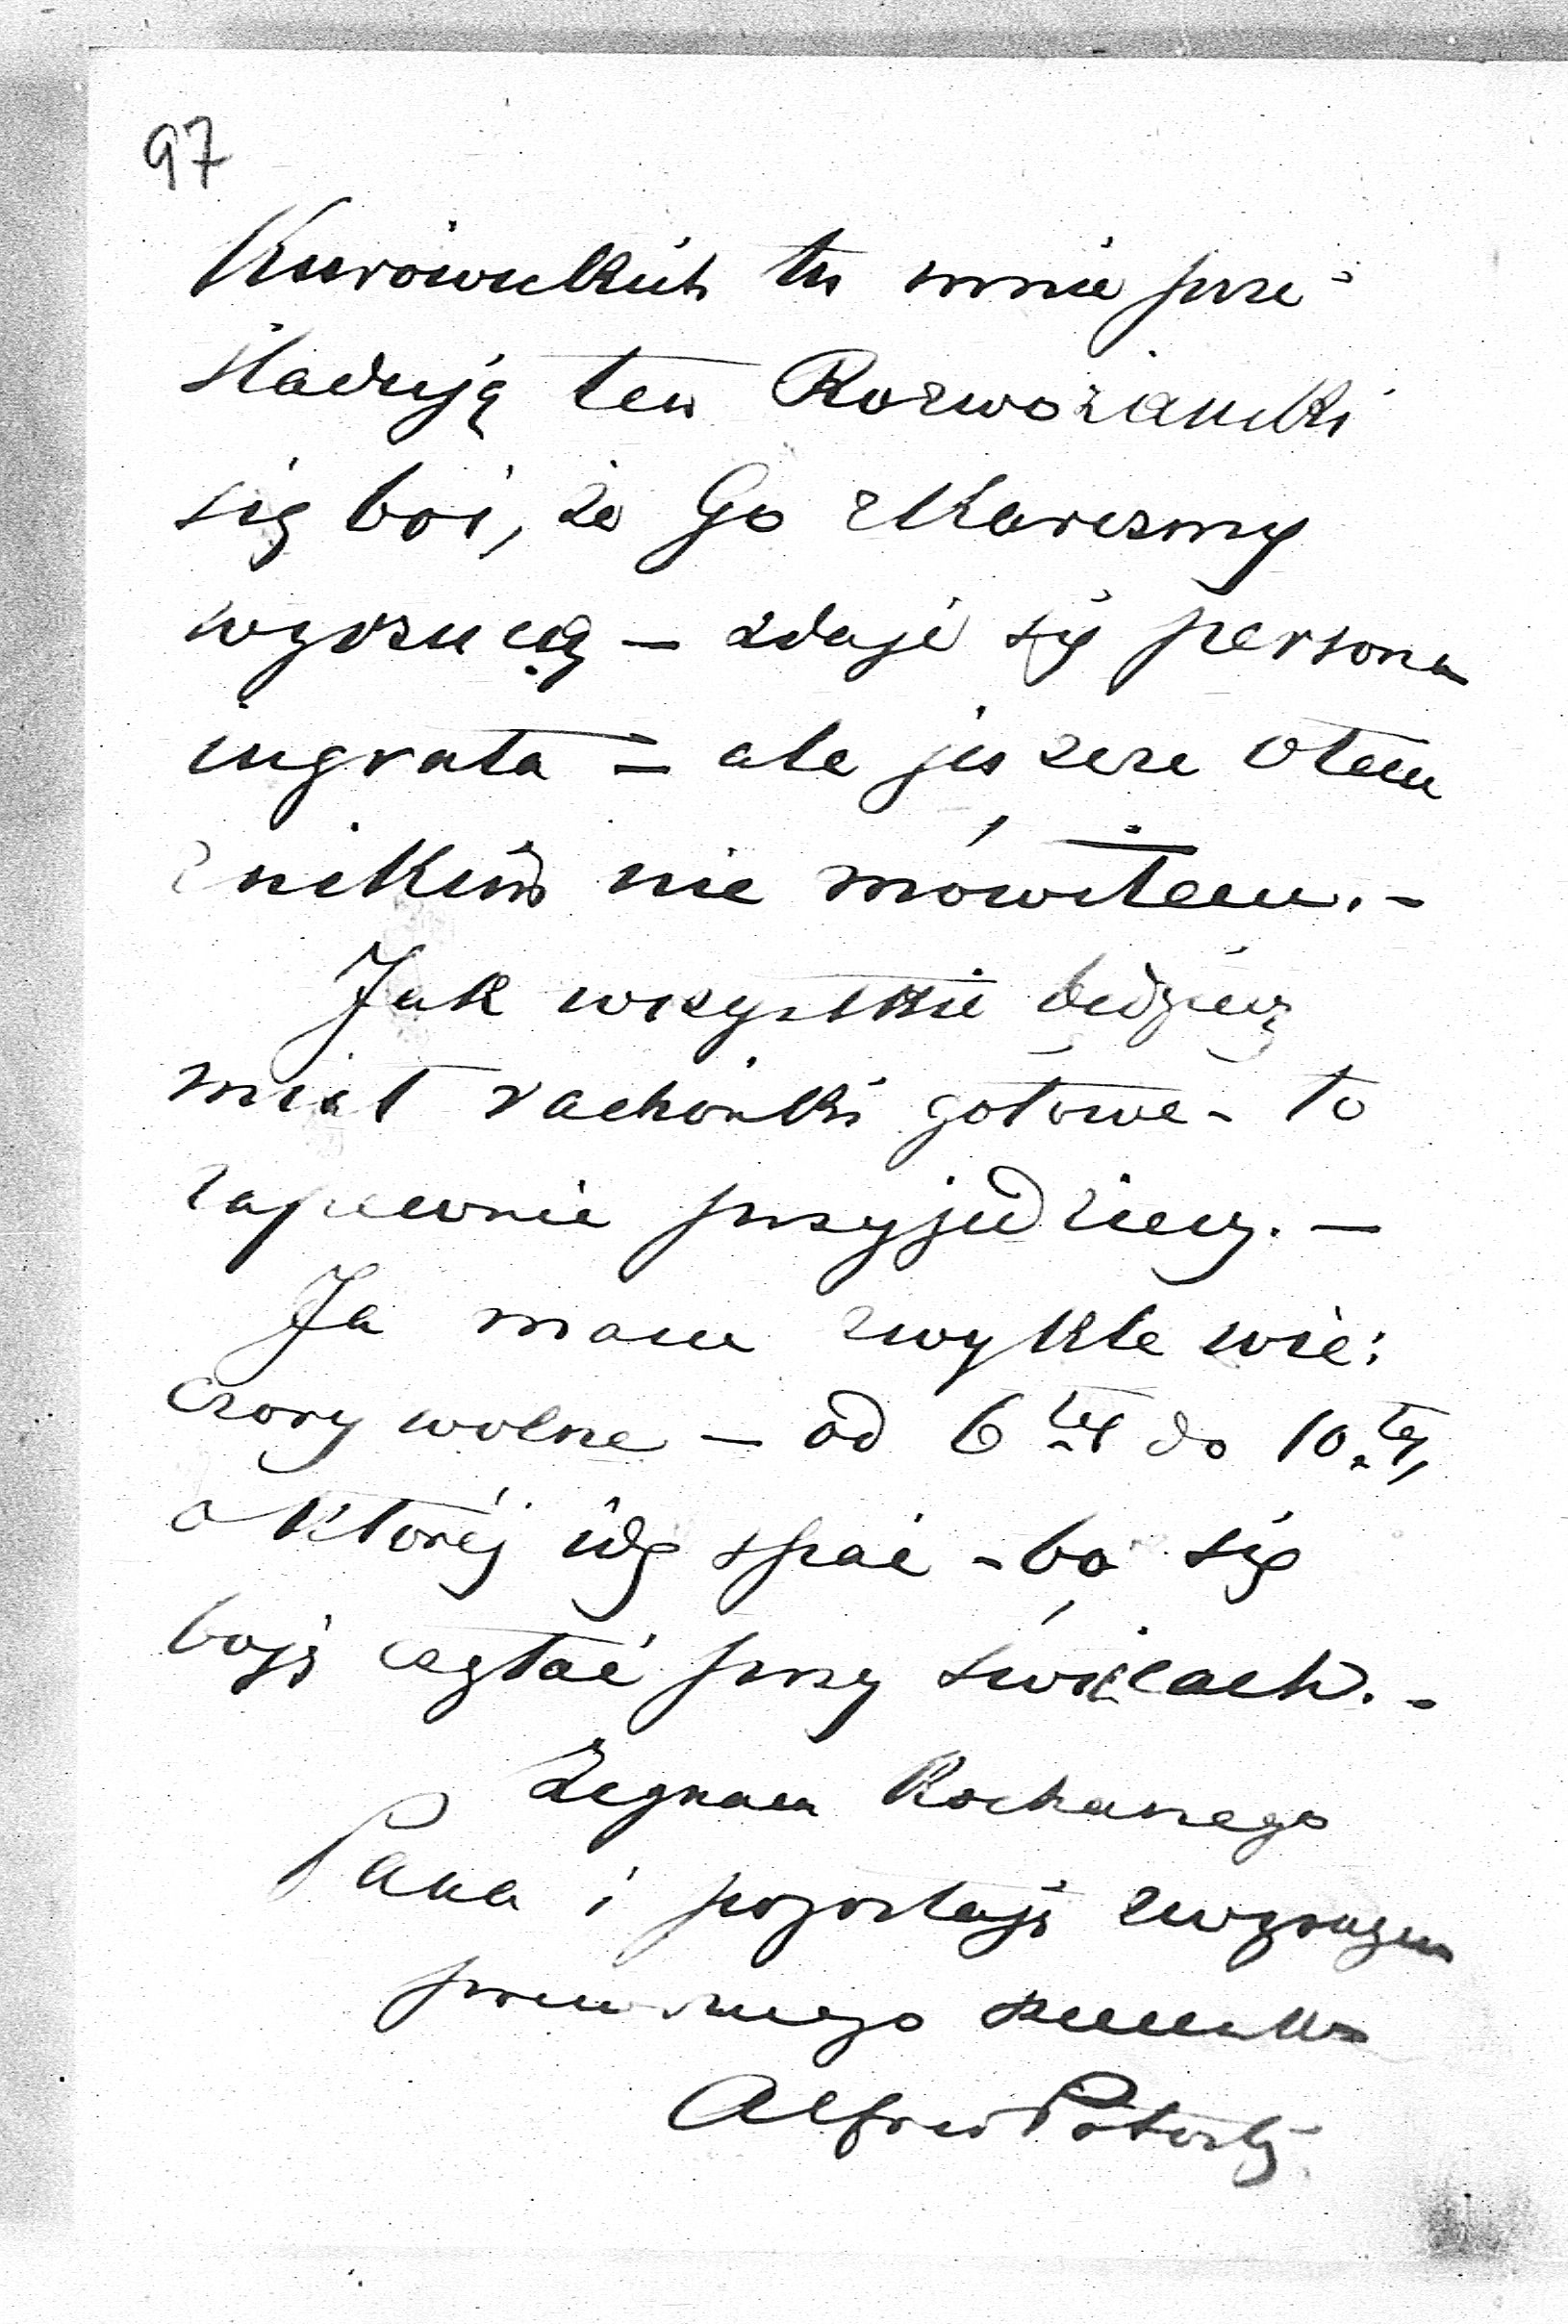 97
Kurowickich tu mnie prze-
śladują ten Rozwożański
się boi, że Go z Karczmy
wyrzucą – zdaje się persona
ingrata – ale jeszcze o tem
z nikim nie mówiłem. –
Jak wszystkie będziesz
miał rachónki gotowe – to
zapewnie przyjedziesz. –
Ja mam zwykle wie:
czory wolne – od 6 tej do 10. tej,
o któréj idę spać – bo się
boję czytać przy świécach. –
Żegnam Kochanego
Pana i pozostaję z wyrazem
prawdziwego szacunku
Alfred Potocki